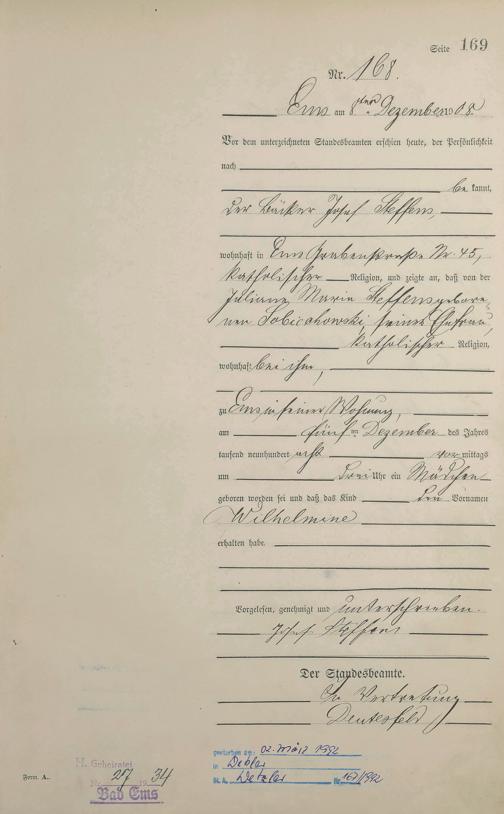 Seite 169
Nr. 168.
Ems am 8ten Dezember 1908.
Vor dem unterzeichneten Standesbeamten erschien heute, der Persönlichkeit
nach
be kannt,
der Bäcker Josef Steffens,
wohnhaft in Ems Grabenstraße Nr. 45,
katholischer Religion, und zeigte an, daß von der
Juliane Marie Steffens gebore
nen Sobichowski, seiner Ehefrau,
katholischer Religion,
wohnhaft bei ihm,
zu Ems in seiner Wohnung,
am fünften Dezember des Jahres
tausend neunhundert acht vormittags
um drei Uhr ein Mädchen
geboren worden sei und daß das Kind den Vornamen
Wilhelmine
erhalten habe.
Vorgelesen, genehmigt und unterschrieben.
Josef Steffens
Der Standesbeamte.
In Vertretung
gestorben am: 02. März 1992
in
St. A. Wetzlar Nr. 167/1992
Form. A.
H. Geheiratet
Nr. 27 1934
Bad Ems